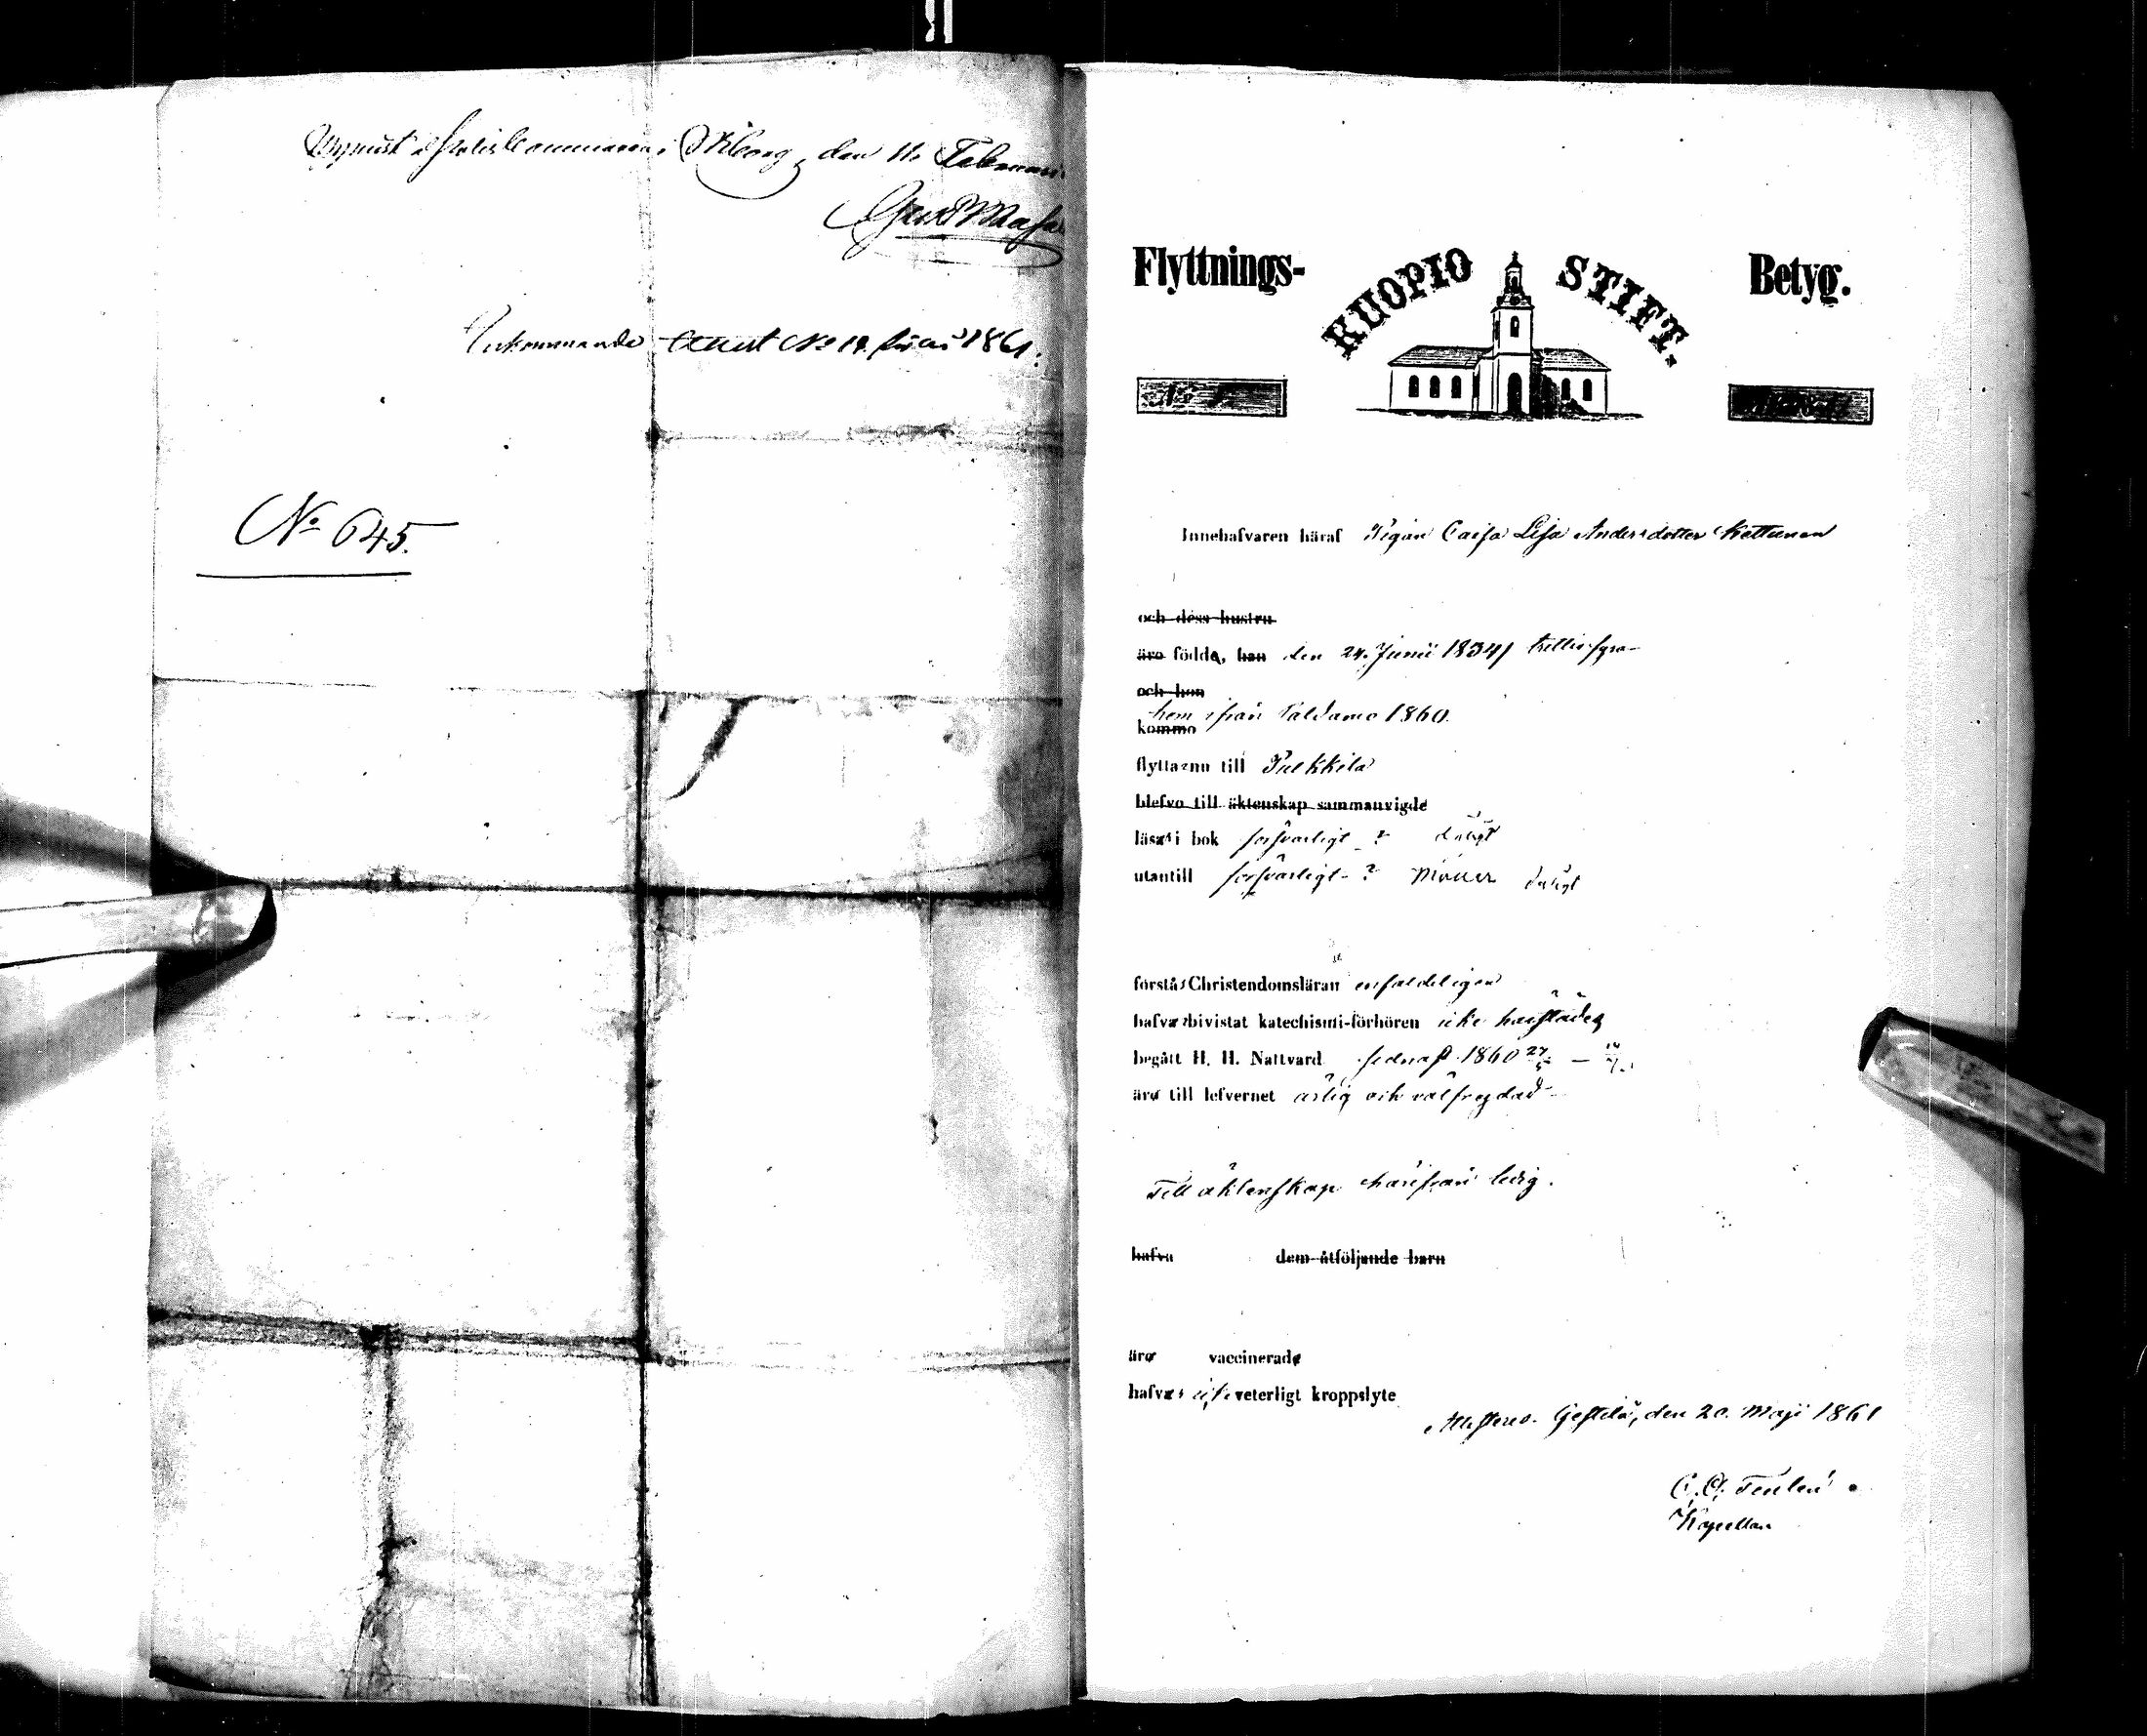 Uppvist i Poliskammaren i Wiborg, den 11 Februari
Inkommande attest No 19. Juni 1861.
No 645.
Flyttnings- KUOPIO STIFT. Betyg.
No
Innehafvaren häraf Pigan Caisa Lisa Andersdotter Kettunen
och dess hustru
äro födde, han den 24. Junii 1834 / trettiofyra
och hon
kommo hem ifrån Paldamo 1860.
flyttar nu till Pulkkila
blefvo till äktenskap sammanvigde
läsa i bok försvarligt ? dåligt
utantill försvarligt ? dåligt
förstår Christendomsläran enfaldeligen
hafva bivistat katechismi-förhören icke härstädes
begått H. H. Nattvard sednast 1860
äro till lefvernet ärlig och välfrejdad
Till äktenskap härifrån ledig.
hafva dem åtföljande barn
äro vaccinerade
hafva icke veterligt kroppslyte
den 20. Maji 1861
Kapellan